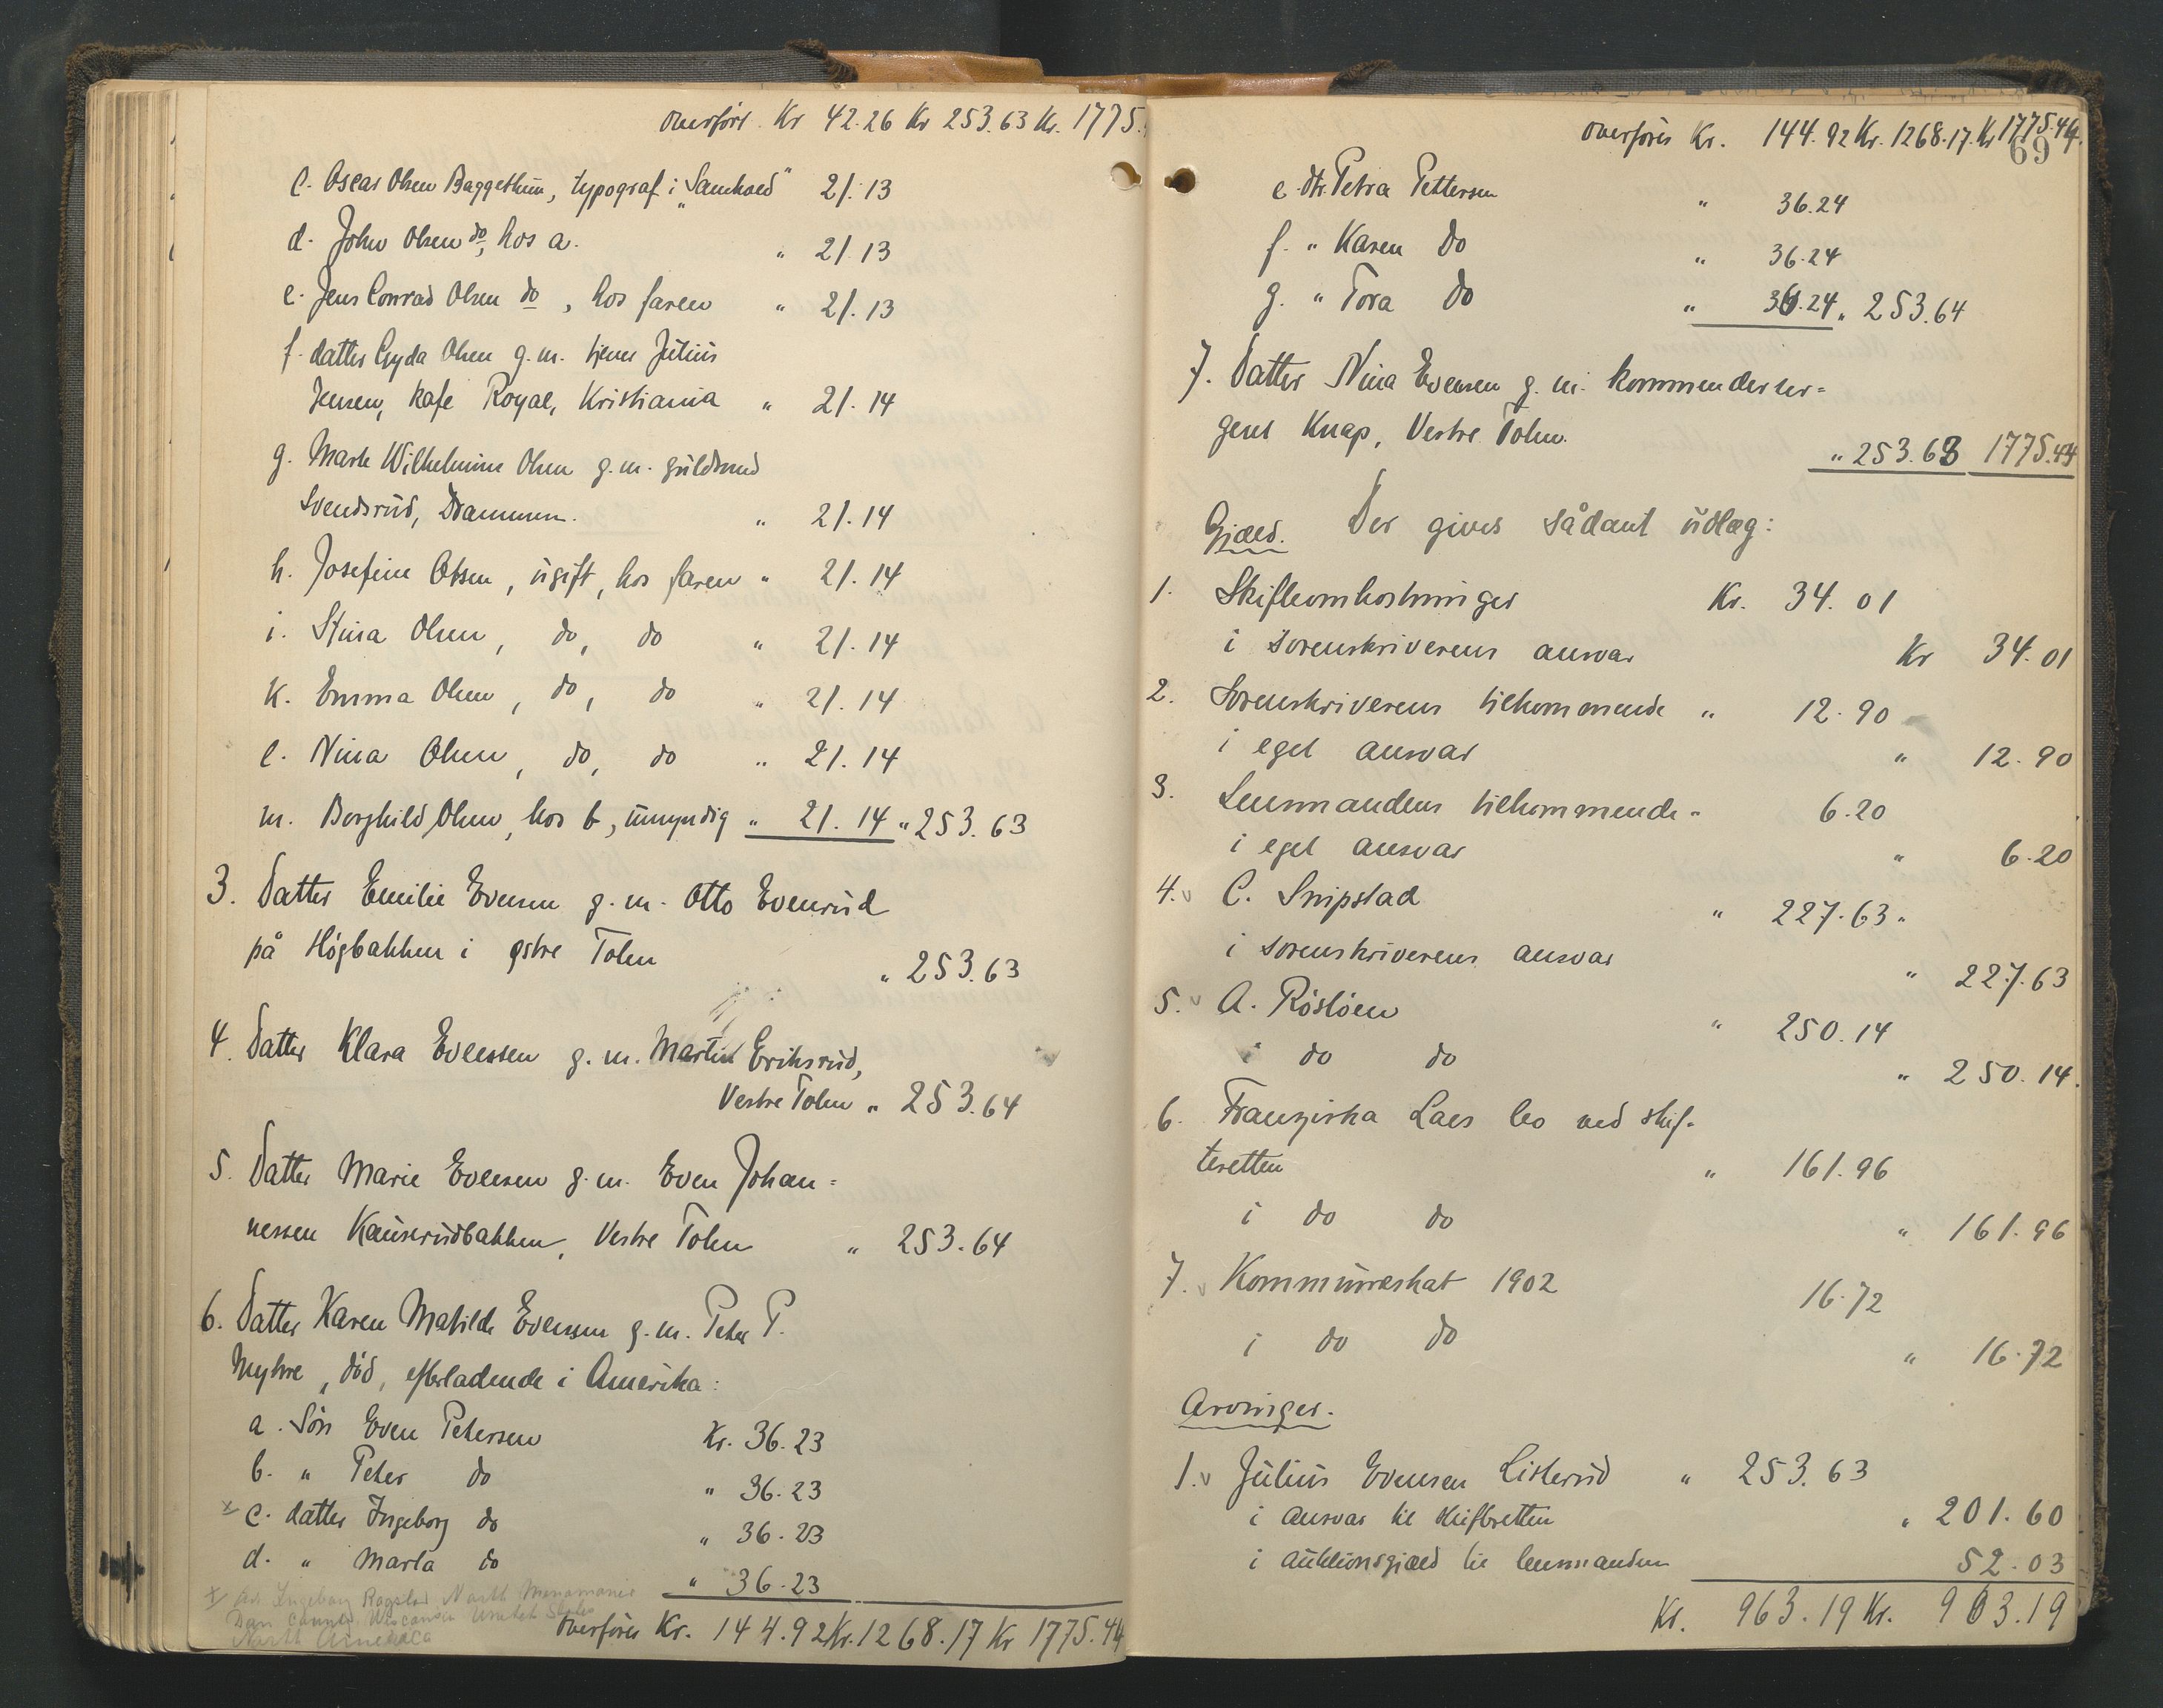 overføres Kr 42.26 Kr 253.63 Kr. 1775.
c. Oscar Olsen Baggethun, typograf i „Samhold" 21.13
d. John Olsen do, hos a. " 21.13
e. Jens Conrad Olsen do, hos faren " 21.13
f. datter Gyda Olsen g.m. tjener Julius
Jensen, kafe Royal, Kristiania " 21.14
g. Marte Wilhelmine Olsen g.m. guldsmed
Svendsrud, Drammen. " 21.14
h. Josefine Olsen, ugift, hos faren " 21.14
i. Stina Olsen, do, do " 21.14
k. Emma Olsen, do, do " 21.14
l. Nina Olsen, do, do " 21.14
m. Borghild Olsen, hos b, umyndig " 21.14 " 253.63
3. Datter Emilie Evensen g.m. Otto Evenrud
på Høgbakken i østre Toten " 253.63
4. Datter Klara Evensen g.m. Martin Eriksrud,
Vestre Toten " 253.64
5. Datter Marie Evensen g.m. Even Johan=
nessen Kauserudbakken, Vestre Toten " 253.64
6. Datter Karen Matilde Evensen g.m. Peter P.
Myhre, død, efterladende i Amerika:
a. Søn Even Petersen Kr. 36.23
b. " Peter do " 36.23
x c. datter Ingeborg do " 36.23
d. " Marta do " 36.23
x Adr Ingeborg Rogstad North Menomonie
Dan County Wisconsin United States
North America
overføres Kr. 144.92 Kr. 1268.17 Kr 1775.44
overføres Kr. 144.92 Kr. 1268.17. Kr 1775.44.
69
e. dtr. Petra Pettersen " 36.24
f. " Karen do " 36.24
g. " Tora do " 36.24 " 253.64
7. Datter Nina Evensen g.m. kommenderser=
gent Knap, Vestre Toten. " 253.63 1775.44
Gjæld. Der gives sådant udlæg:
1. Skifteomkostninger Kr. 34.01
i sorenskriverens ansvar Kr 34.01
2. Sorenskriverens tilkommende " 12.90
i eget ansvar " 12.90
3. Lensmandens tilkommende " 6.20
i eget ansvar " 6.20
4. v C. Snipstad " 227.63
i sorenskriverens ansvar " 227.63
5. v A. Røstøen " 250.14
i do do " 250.14.
6. Franziska Laes bo ved skif-
teretten " 161.96
i do do " 161.96
7. v Kommuneskat 1902 16.72
i do do " 16.72
Arvinger.
1. v Julius Evensen Listerud " 253.63
i ansvar til skifteretten " 201.60
i auktionsgjæld til lensmanden 52.03
Kr. 963.19 Kr. 963.19